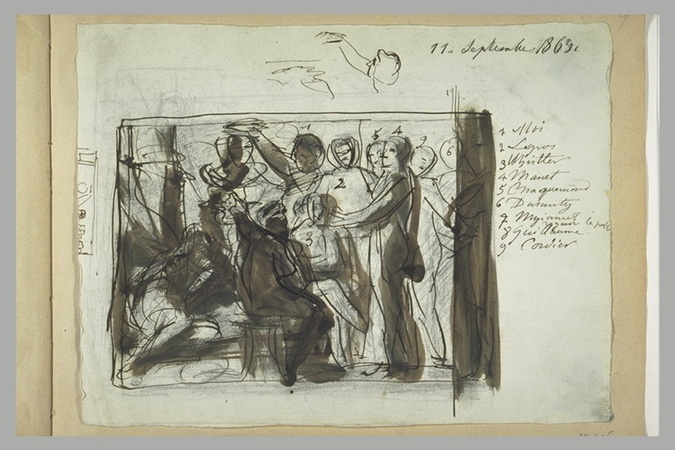 11. Septembre 1863.
1 Moi
2 Legros
3 Whistler
4 Manet
5 Braquemond
6 Duranty
7
8 Guillaume
9 Cordier
1
5
4
9
6
2
3